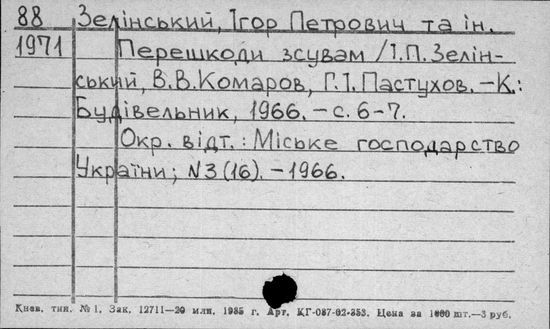 88 Зелінський, Ігор Петрович та ін.
1971 Перешкоди зсувам /І.П.Зелін-
ський, В.В.Комаров, Г.І.Пастухов. –К.:
Будівельник, 1966. – с. 6-7.
Окр. відт.: Міське господарство
України; N3(16). –1966.
Киев. тип. № 1. Зак. 12711—20 млн. 1985 г. Арт. КГ-087-02-353. Цена за 1000 шт.—3 руб.